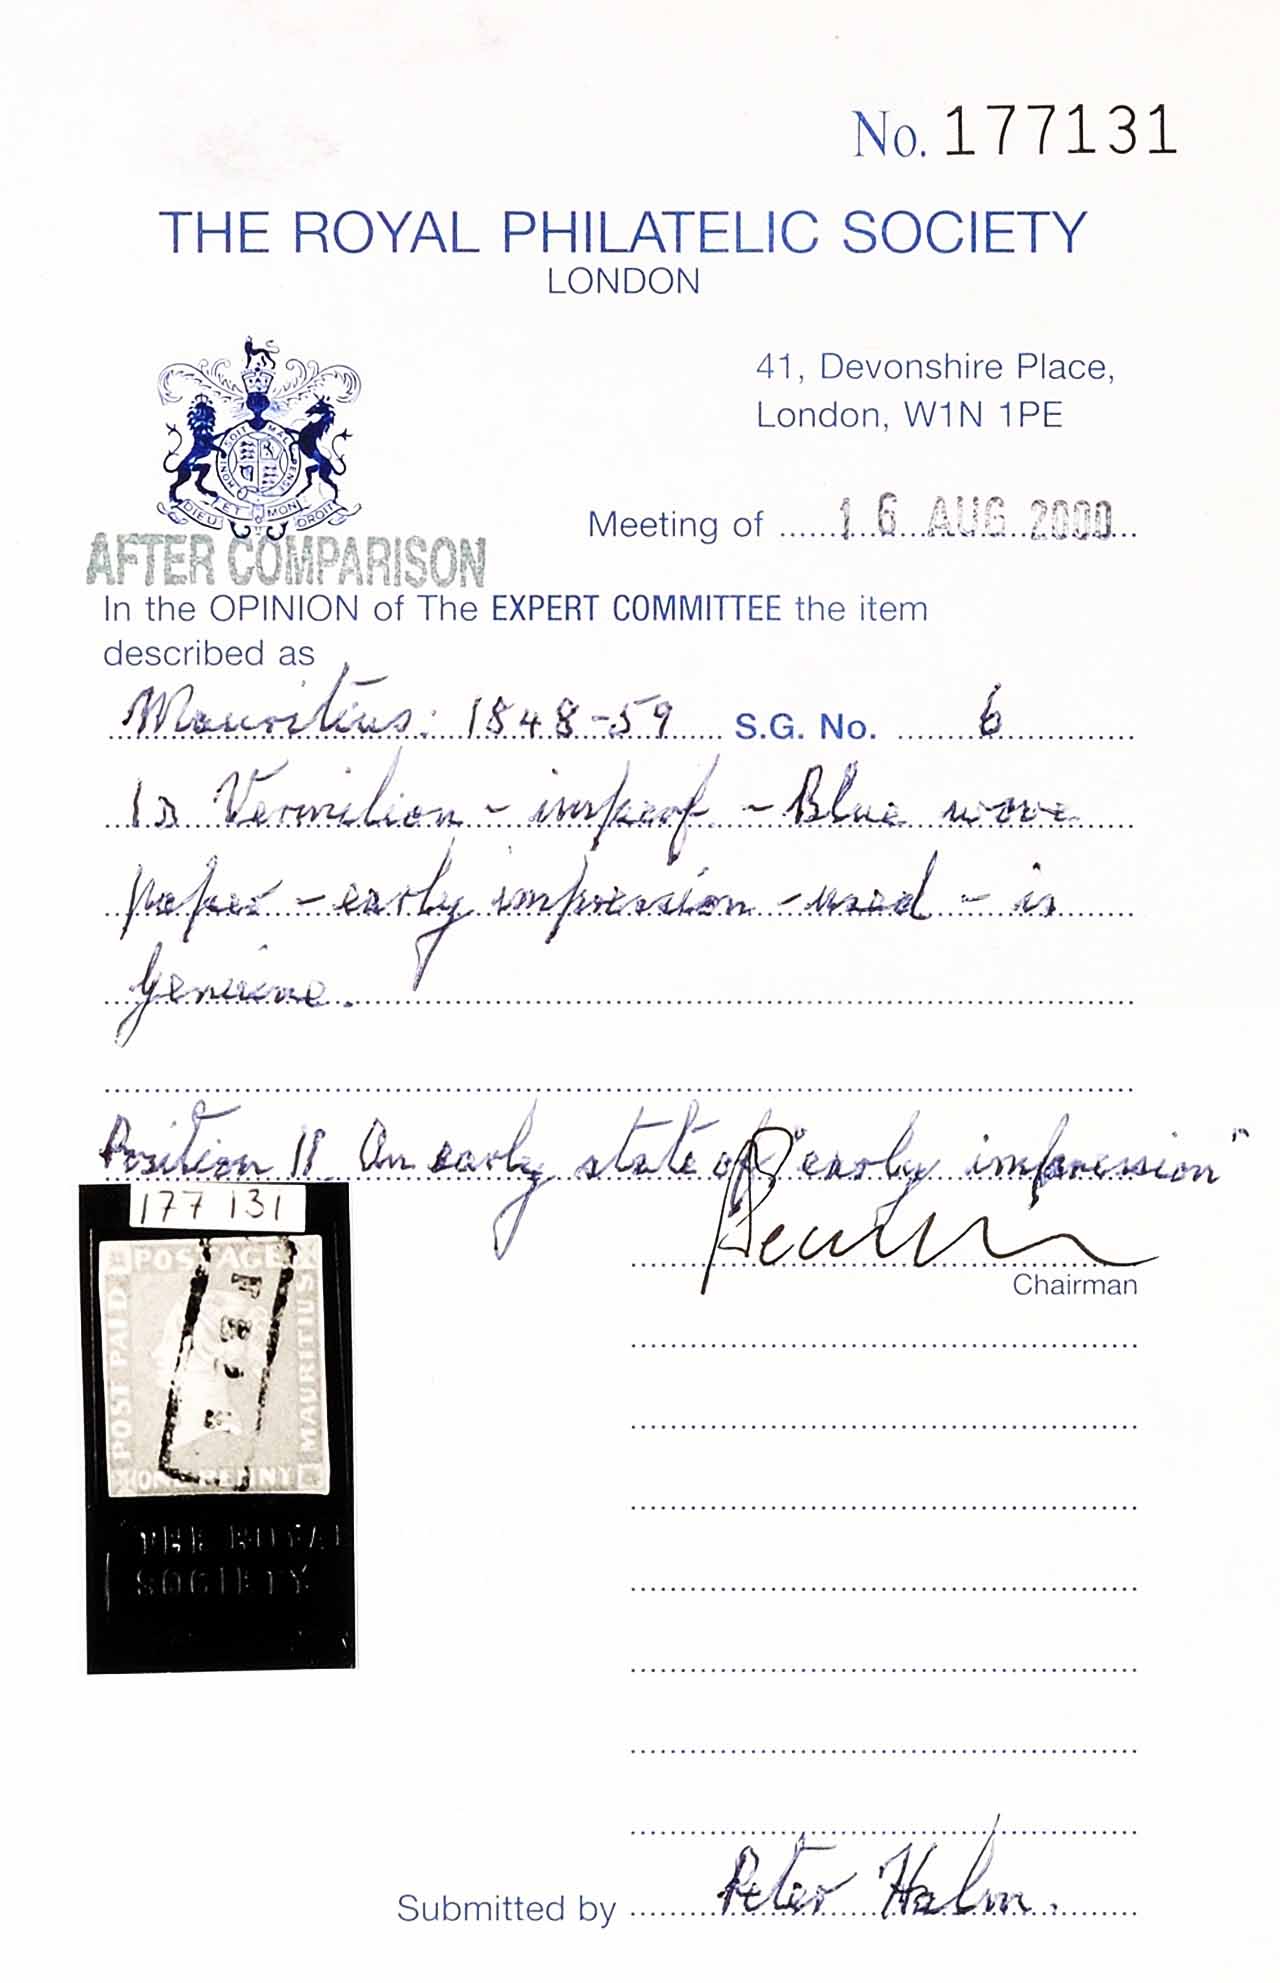 No. 177131
THE ROYAL PHILATELIC SOCIETY
LONDON
41, Devonshire Place,
London, W1N 1PE
HONI SOIT MAL PENSE
DIEU ET MON DROIT
Meeting of 16 AUG 2000
AFTER COMPARISON
In the OPINION of The EXPERT COMMITTEE the item
described as
Mauritius: 1848-59 S.G. No. 6
1d Vermilion - imperf - Blue wove
paper - early impression - used - is
Genuine.
Position 11 An early state of "early impression"
Chairman
177 131
POSTAGE
POST PAID
MAURITIUS
ONE PENNY
THE ROYAL
SOCIETY
Submitted by Peter Halm.